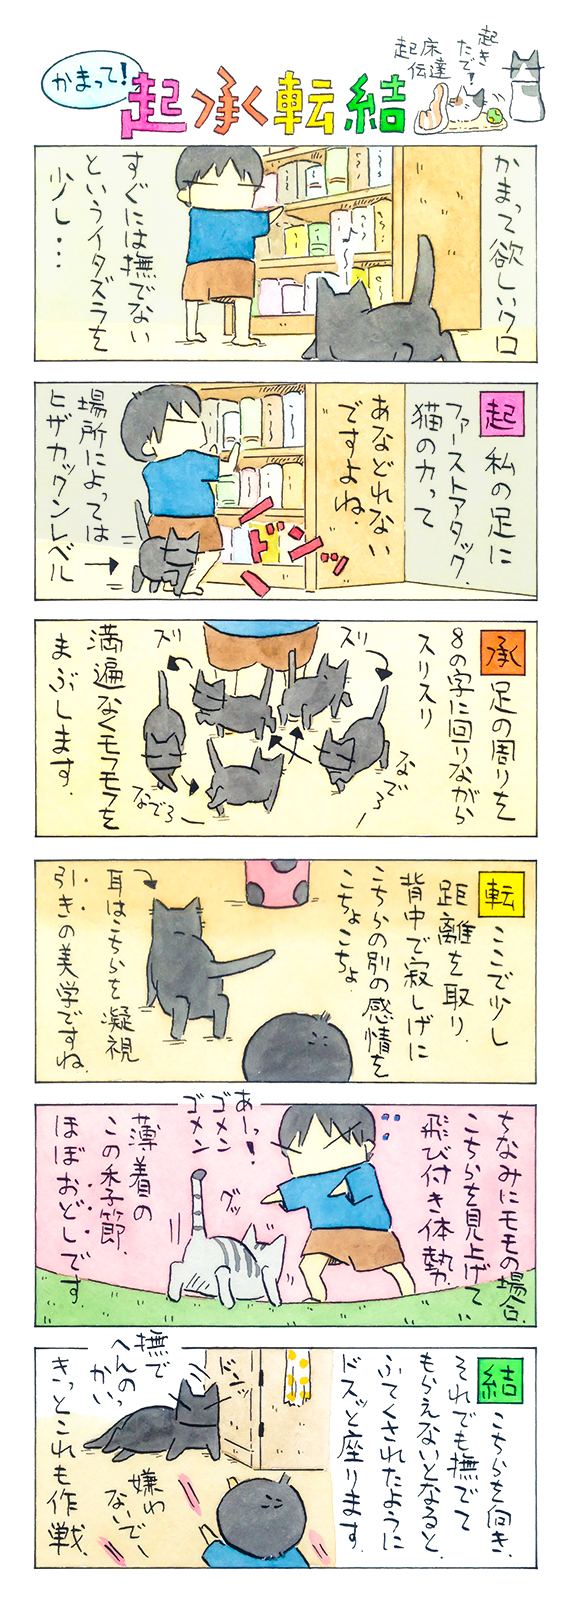 かまって!
起承く転結
起床
伝達
起き
たで!
かまって欲しいクロ
すぐには撫でない
というイタズラを
少し・・・
起
私の足に
ファーストアタック.
猫の力って
あなどれない
ですよね.
ドンッ
場所によっては
ヒザカックンレベル
承
足の周りを
8の字に回りながら
スリスリ
ズリ
ズリ
なでろー
なでろー
満遍なくモフモフを
まぶします.
転
ここで少し
距離を取り.
背中で寂しげに
こちらの別の感情を
こちょこちょ.
耳はこちらを凝視
引きの美学ですね.
ちなみにモモの場合.
こちらを見上げて
飛び付き体勢.
あーっ!
ゴメン
ゴメン
グッ
薄着の
この季節.
ほぼおどしです
結
こちらを向き.
それでも撫でて
もらえないとなると.
ふてくされたように
ドスッと座ります.
ドンッ
撫で
へんのっ
かい
嫌わ
ないでー
きっとこれも作戦.